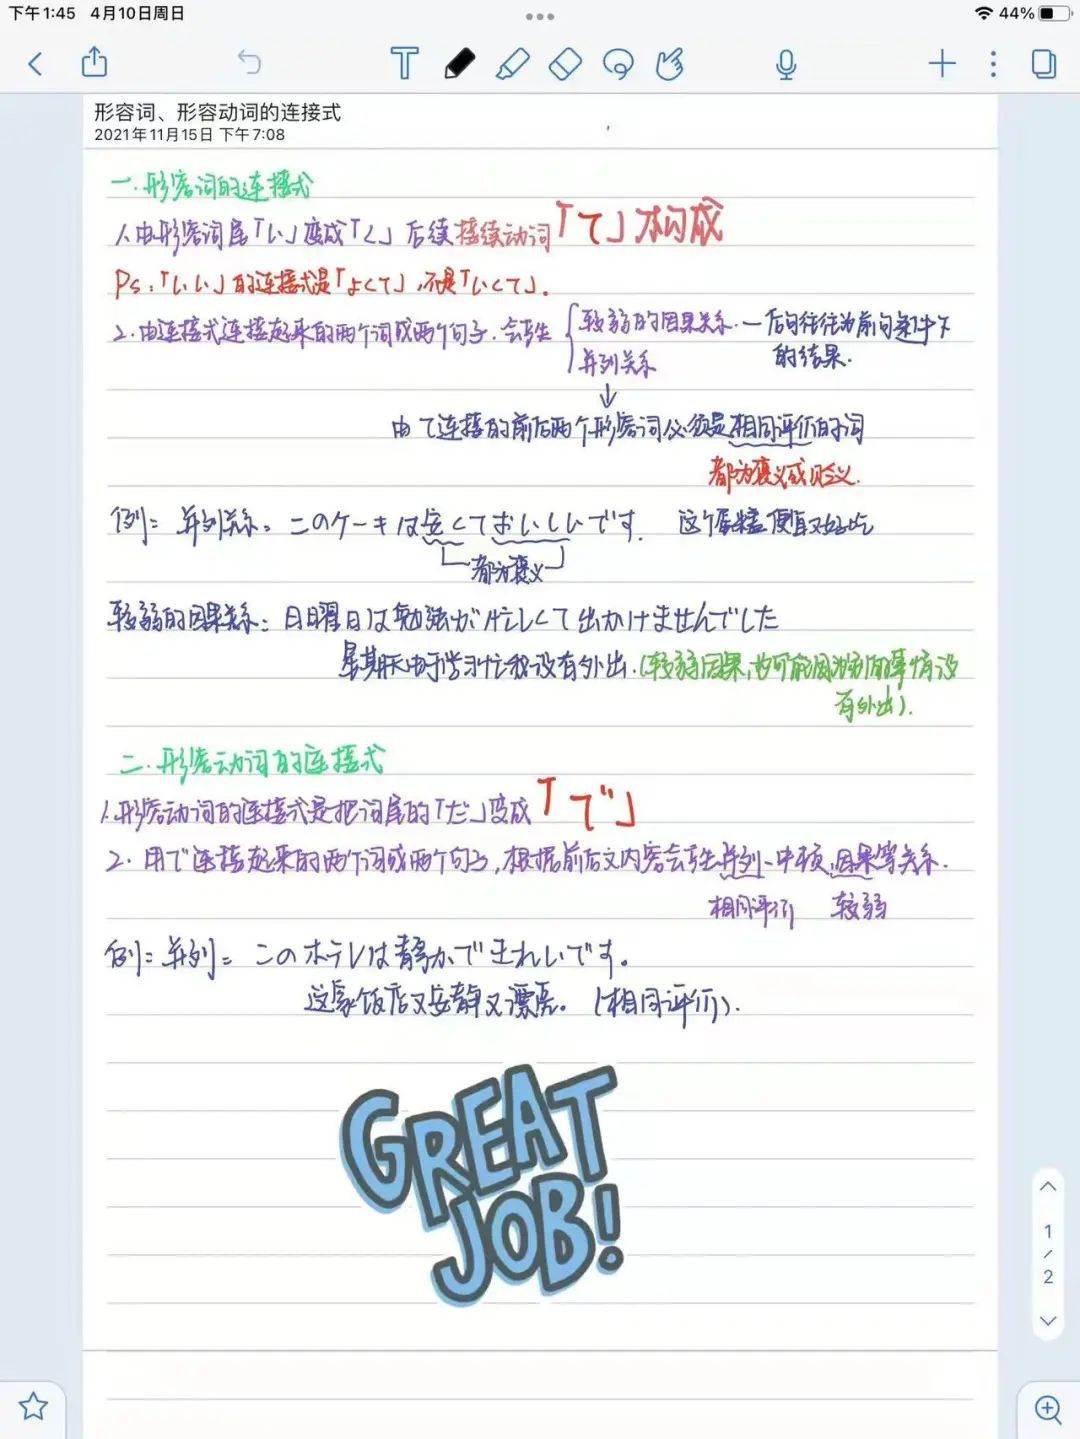 下午1:45 4月10日周日
44%
形容词、形容动词的连接式
2021年11月15日 下午7:08
一.形容词的连接式
1.由形容词尾「い」变成「く」后续接续动词「て」构成
Ps:「いい」的连接式是「よくて」,不是「いくて」.
2.由连接式连接起来的两个词或两个句子.会产生
较弱的因果关系.一后句往往为前句条件下
的结果.
并列关系
由て连接的前后两个形容词必须是相同评价的词
都为褒义或贬义.
例: 并列关系: このケーキは安くておいしいです. 这个蛋糕便宜又好吃
都为褒义
较弱的因果关系: 日曜日は勉強が忙しくて出かけませんでした
星期天由于学习忙我没有外出.(较弱因果,也可能因为别的事情没
有外出).
二.形容动词的连接式
1.形容动词的连接式是把词尾的「だ」变成「で」
2.用で连接起来的两个词或两个句子,根据前后文内容会产生并列、中顿、因果等关系.
相同评价 较弱
例: 并列: このホテルは静かできれいです。
这家饭店又安静又漂亮。(相同评价).
GREAT
JOB!
1
/
2